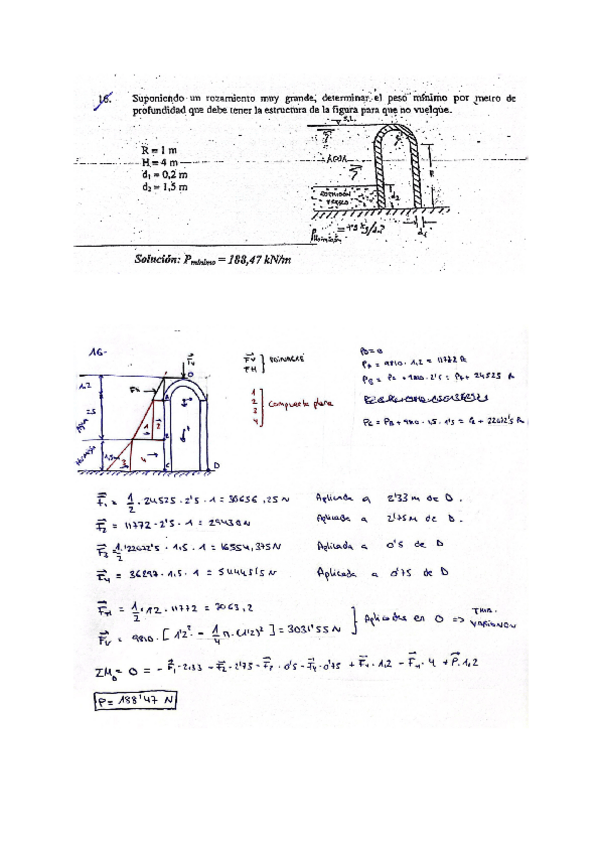 16. Suponiendo un rozamiento muy grande, determinar el peso mínimo por metro de
profundidad que debe tener la estructura de la figura para que no vuelque.
S.L.
R = 1 m
H = 4 m
d₁ = 0,2 m
d₂ = 1,5 m
AGUA
HORMIGÓN
FRESCO
d₂
d₁
Solución: Pmínimo = 188,47 kN/m
16-
Fv
FH
O
1,2
A
B
C
D
1
2
3
4
1
2
3
4
Compuerta plana
P0 = 0
PA = 9810 · 1,2 = 11772 Pa
F1 = 1/2 · 24525 · 2'5 · 1 = 30656,25 N Aplicada a 2'33 m de D.
F2 = 11772 · 2'5 · 1 = 29430 N Aplicada a 2'75 m de D.
F3 = 1/2 · 22072'5 · 1,5 · 1 = 16554,375 N Aplicada a 0'5 de D
F4 = 36297 · 1,5 · 1 = 54445'5 N Aplicada a 0'75 de D
FH = 1/2 · 1'2 · 11772 = 7063,2
Fv = 9810 · [1'2² - 1/4 π · (1'2)²] = 3031'55 N
Aplicadas en O => Thm. Varignon
ΣMD = 0 = - F1 · 2,33 - F2 · 2'75 - F3 · 0'5 - F4 · 0'75 + Fv · 1,2 - FH · 4 + P · 1,2
P = 188'47 N